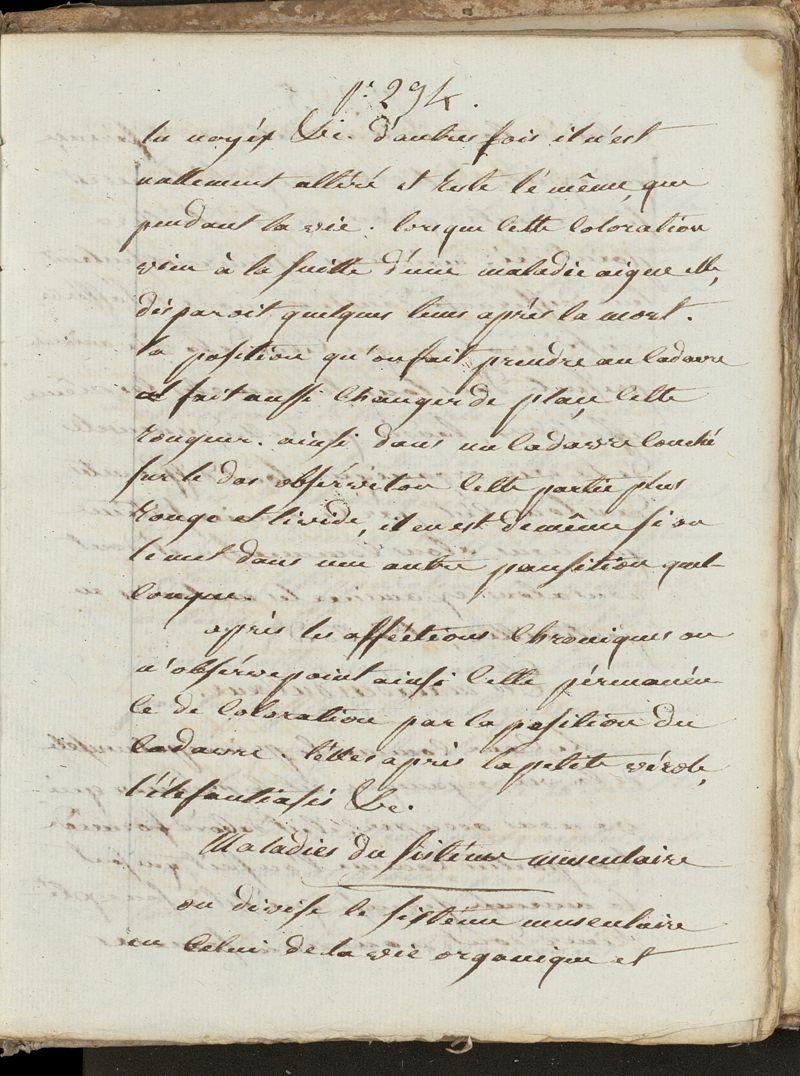 p.e 294.
les noyés &c. d'autres fois il n'est
nullement altéré et reste lé même, que
pendant la vie. lorsque cette coloration
vien à la suitte d'une maladie aigue elle,
disparoit quelques tems après la mort.
la position qu'on fait prendre au cadavre
fait aussi changer de place cette
rougeur. ainsi dans un cadavre couché
sur lé dos obsérvet'on cette partie plus
rouge et livide, il en est de même si on
le met dans une autre pausition quel-
conque.
après les affections chroniques on
n'obsérve point ainsi cette pérmanén-
ce de coloration par la position du
cadavre. télles après la petite vérole,
l'éléfantiasis &c.
Maladies du sistéme musculaire
on divise le sistéme musculaire
en celui de la vie organique et